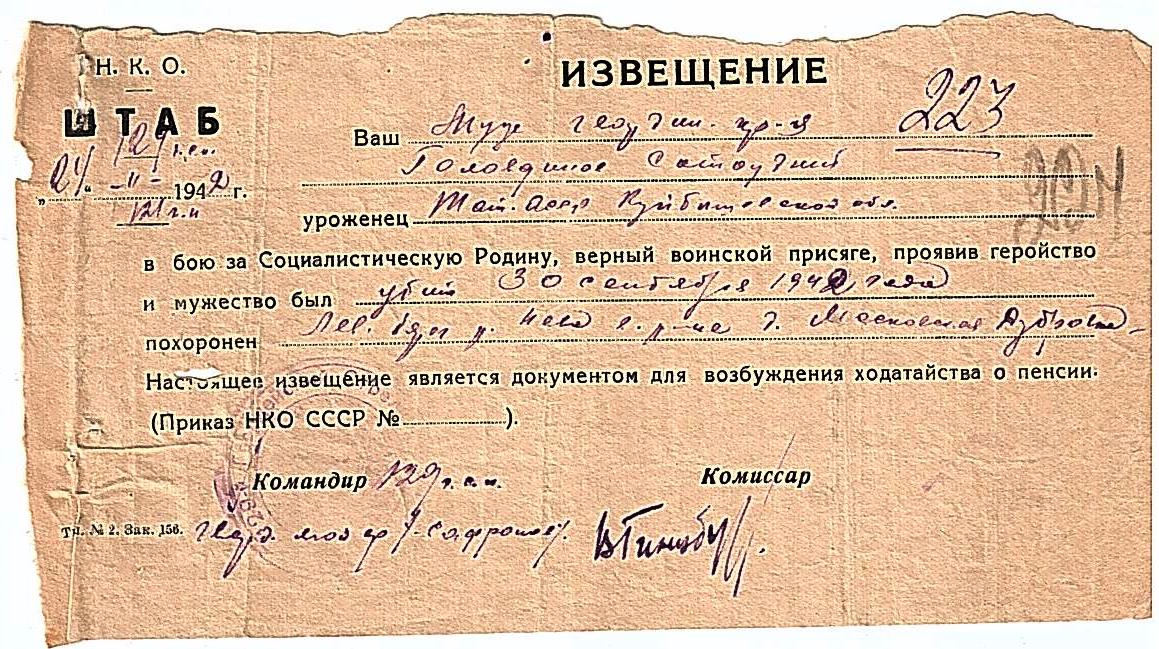 Н. К. О.
ИЗВЕЩЕНИЕ
223
ШТАБ
129
24 " - 11 - 1942 г.
Ваш Муж гвардии кр-ц
уроженец Тат. АССР Куйбышевской обл.
в бою за Социалистическую Родину, верный воинской присяге, проявив геройство
и мужество был убит 30 сентября 1942 года
похоронен Лев. берег р. Нева в р-не д. Московская Дубровка
Настоящее извещение является документом для возбуждения ходатайства о пенсии.
(Приказ НКО СССР № ).
Командир 129
Комиссар
Тп. № 2. Зак. 156.
гвард. майор /Сафронов/.
ВГинзбург